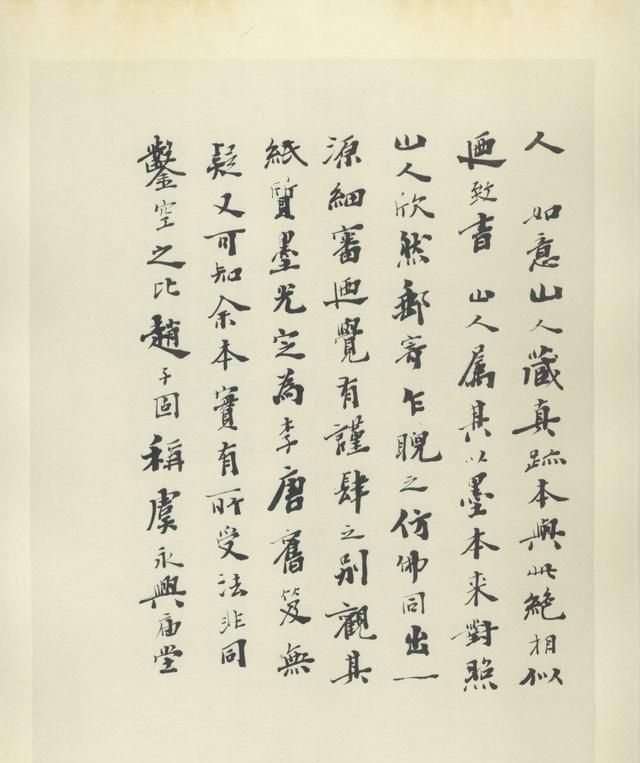 人 如意山人藏真跡本與此絕相似
迺致書 山人属其以墨本来對照
山人欣然郵寄乍睨之仿佛同出一
源細審迺覺有謹肆之别觀其
紙質墨光定為李唐舊笈無
疑又可知余本實有所受法非同
鑿空之比趙子固稱虞永興庙堂